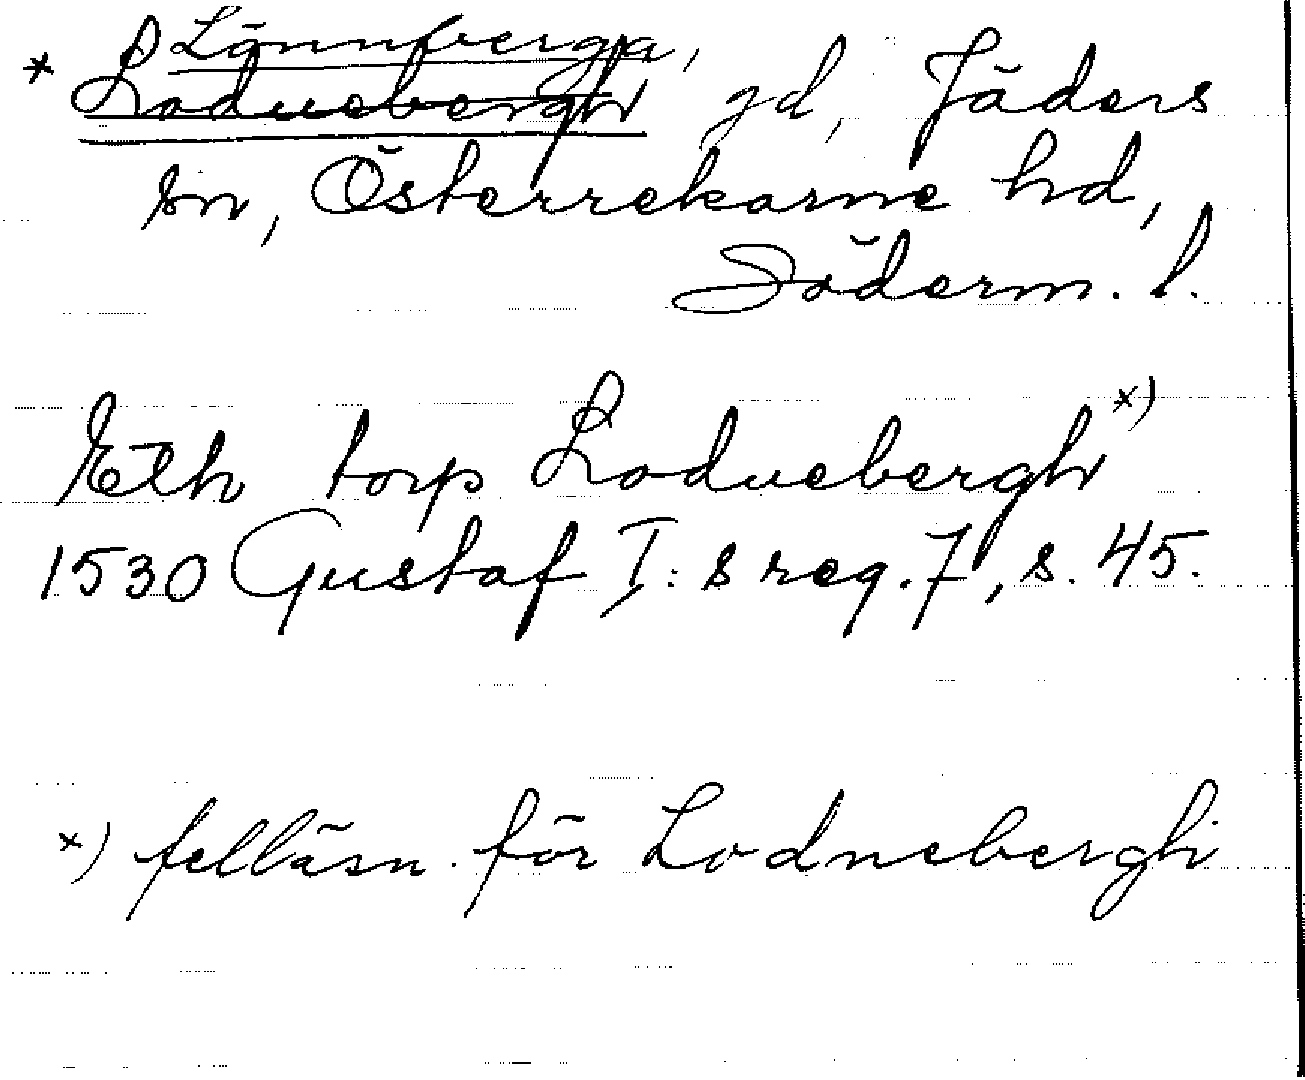 Lönnberga,
* Loduebergh gd, Jäders
sn, Österrekarne hd,
Söderm. l.
Eth torp Loduebergh x)
1530 Gustaf I:s reg. 7, s. 45.
x) felläsn. för Lodnebergh